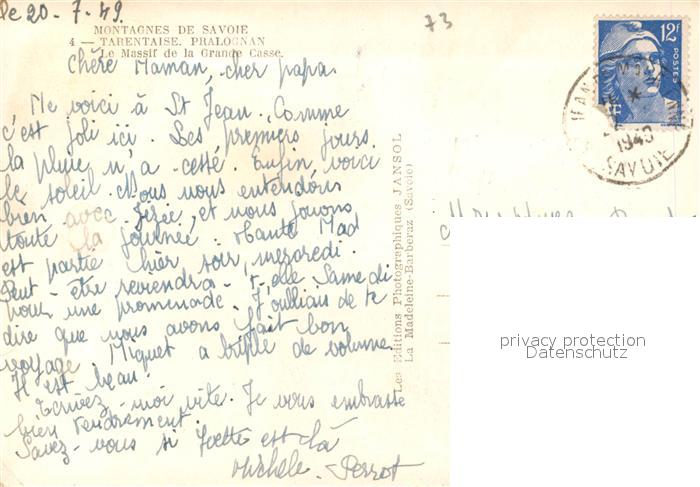 le 20-7-49.
73
MONTAGNES DE SAVOIE
4 — TARENTAISE. PRALOGNAN
Le Massif de la Grande Casse.
12F
POSTES
1949
SAVOIE
Chère Maman, cher papa.
Me voici à St Jean. Comme
c'est joli ici. Les premiers jours
la pluie n'a cessé. Enfin voici
le soleil. Nous nous entendons
bien avec, et nous jouons
toute la journée. Mad
est partie hier soir, mercredi.
Peut-être reviendra-t-elle Samedi
pour une promenade. J'oulliais de te
dire que nous avons fait bon
voyage. Miquet a triplé de volume.
Il est beau.
Ecrivez-moi vite. Je vous embrasse
bien tendrement.
Savez-vous si est là
Michèle. Perrot
Les Editions Photographiques JANSOL
La Madeleine-Barberaz (Savoie)
privacy protection
Datenschutz